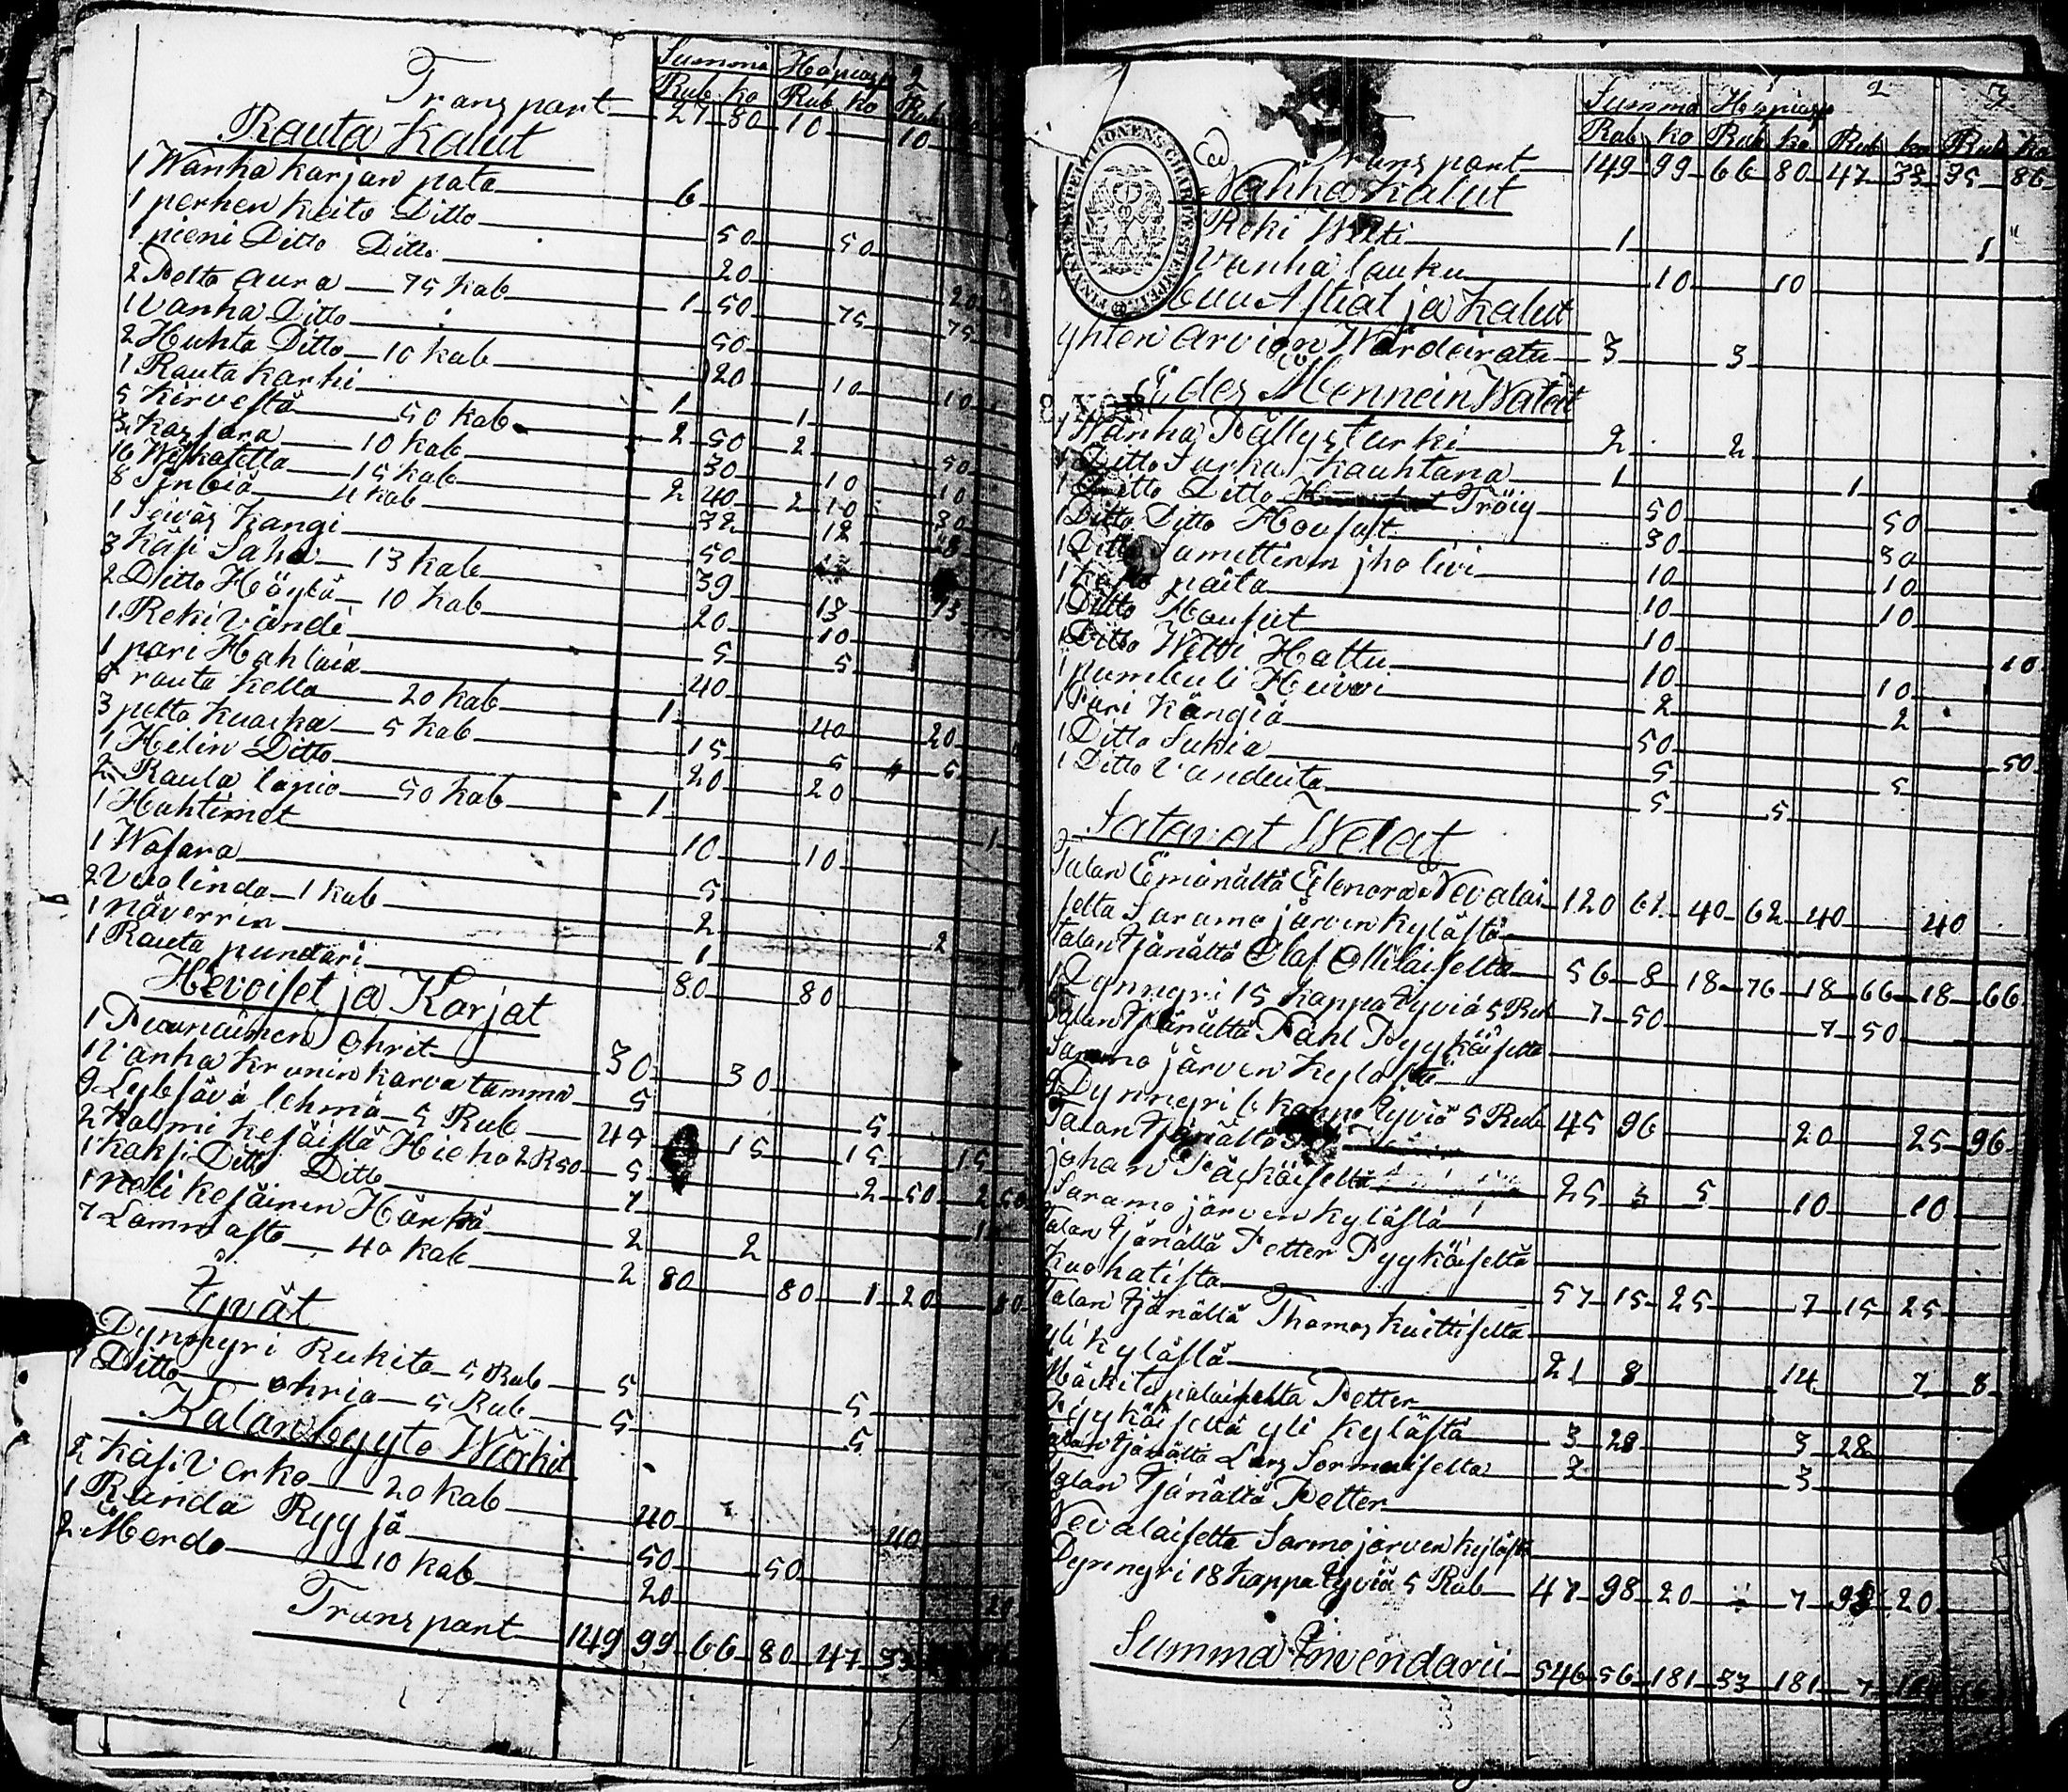 Summa Hopiasa 2
Rub ko Rub ko Rub
Transport 27 80 10 10
Rauta Kalut
1 Wanha karjan pata 6
1 perhen keito Ditto 50 50
1 pieni Ditto Ditto 20 20
2 Pelto aura 75 kab 1 50 75 75
1 Vanha Ditto 50
2 Huhta Ditto 10 kab 20 10 10
1 Rauta karhi 1 1
5 Kirvestä 50 kab 2 50 2 50
3 Kassara 10 kab 30 10 10
16 Wiikatetta 15 kab 2 40 2 10 30
8 Sirbiä 4 kab 32 12
1 Seiväs Kangi 50
3 Käsi Saha 13 kab 39 13 13
2 Ditto Höylä 10 kab 20 10
1 Reki Vändi 5 5
1 pari Hahloia 40
5 rauta kello 20 kab 1 40 20
3 petto kuocka 5 kab 15 5 5
1 Heilin Ditto 20 20
2 Rauta lapio 50 kab 1 1
1 Hahtimet 10 10
1 Wasara 5
2 Vuolinda 1 kab 2 2
1 näverrin 1
1 Rauta pundari 80 80
Hevoiset ja Karjat
1 Punaisen ohrit 30 30
1 Vanha krunin karva tamma 5 5
9 Lybsävä lehmä 5 Rub 45 15 15 15
2 kolmi kesäistä Hieho 2 R 50 5 2 50 2 50
1 kaksi Ditto Ditto 1 1
1 neli kesäinen Härkä 2 2
7 Lammasta 40 kab 2 80 80 1 20 80
Jyvät
1 Dynnyri Rukita 5 Rub 5 5
1 Ditto ohria 5 Rub 5 5
Kalan byyto Wärkit
2 Käsi Verko 20 kab 40 40
1 Randa Rysä 50 50
2 Merda 10 kab 20 20
Transport 149 99 66 80 47 33
Summa Hopiasa 2 3
Rub ko Rub ko Rub ko Rub ko
Transport 149 99 66 80 47 33 35 86
Nahka Kalut
Reki Wilti 1 1
Vanha lauku 10 10
Puu Astiat ja Kalut
yhten arvion Wärdeiratu 3 3
Edes Mennein Watet
1 Wanha Pällysturki 2 2
1 Ditto Sarka Kauhtana 1 1
1 Ditto Ditto Tröiy 50 50
1 Ditto Ditto Housut 30 30
1 Ditto Samettinen jho livi 10 10
1 paita 10 10
1 Ditto Housut 10 10
1 Ditto Willi Hattu 10 10
1 pumbuli Huivi 2 2
1 Pari Kängiä 50 50
1 Ditto Sukia 5 5
1 Ditto Vandeita 5 5
Satavat Welat
Talan Emänältä Elenora Nevalai
selta Saramo järven kylästä 120 62 40 62 40 40
Talan Jsänältä Olaf Ollilaiselta 56 8 18 76 18 66 18 66
1 Dynnyri 15 kappa Jyviä 5 Rub 7 50 7 50
Talan Jsänältä Pahl Pyykkäiselta
Saramo järven kylästä
9 Dynnyri 6 kappa Jyviä 5 Rub 45 96 20 25 96
Talan Jsänältä
johan Päckäiseltä
Saramo järven kylästä 25 5 10 10
Talan Jsänältä Petter Pyykäiseltä
Kuohatista 57 15 25 7 15 25
Talan Jsänältä Thomas Kuittiselta
yli kylästä 21 8 14 7 8
Mäckitupalaiselta Petter
Pyykäiseltä yli kylästä 3 28 3 28
Talan Jsänältä Lars Sormuiselta 3 3
Talan Jsänältä Petter
Nevalaiselta Sarmojärven kylästä
Dynnyri 18 kappa Jyviä 5 Rub 47 98 20 7 98 20
Summa Jnvendarii 546 56 181 33 181 7